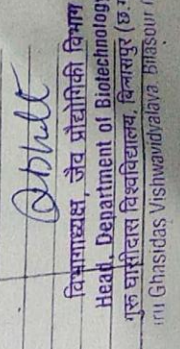 विभागाध्यक्ष, जैव प्रौद्योगिकी विभाग
Head, Department of Biotechnology
गुरू घासीदास विश्वविद्यालय, बिलासपुर (छ.ग
Ghasidas Vishwavidyalaya Bilaspur